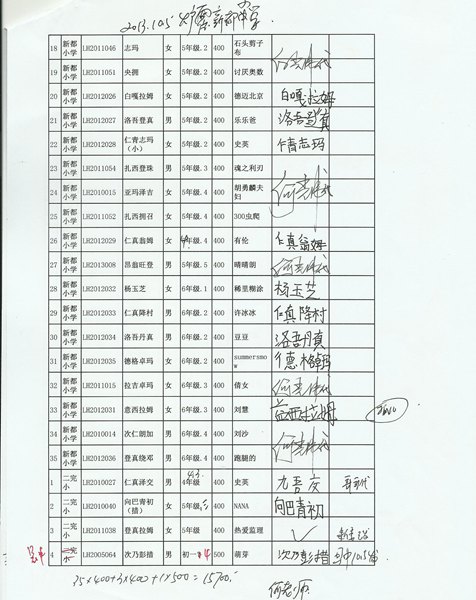 2013.10.5
18 新都小学 LH2011046 志玛 女 5年级.2 400 石头剪子布
19 新都小学 LH2011051 央拥 女 5年级.2 400 讨厌奥数
20 新都小学 LH2012026 白嘎拉姆 女 5年级.2 400 德迈北京 白嘎拉姆
21 新都小学 LH2012027 洛吾登真 男 5年级.2 400 乐乐爸 洛吾登真
22 新都小学 LH2012028 仁青志玛(小) 女 5年级.2 400 史英 仁青志玛
23 新都小学 LH2011054 扎西登珠 男 5年级.3 400 魂之利刃
24 新都小学 LH2010015 亚玛泽吉 女 5年级.4 400 胡勇麟夫妇
25 新都小学 LH2011052 扎西拥召 女 5年级.4 400 300虫爬
26 新都小学 LH2012029 仁真翁姆 女 5年级.4 400 有伦 仁真翁姆
27 新都小学 LH2013008 昂翁旺登 男 5年级.5 400 晴晴朗
28 新都小学 LH2012032 杨玉芝 女 6年级.1 400 稀里糊涂 杨玉芝
29 新都小学 LH2012033 仁真降村 男 6年级.2 400 许冰冰 仁真降村
30 新都小学 LH2012034 洛吾丹真 男 6年级.2 400 豆豆 洛吾丹真
31 新都小学 LH2012035 德格卓玛 女 6年级.2 400 summersmow 德格卓玛
32 新都小学 LH2011015 拉吉卓玛 女 6年级.3 400 倩女
33 新都小学 LH2012031 意西拉姆 女 6年级.3 400 刘慧 意西拉姆
34 新都小学 LH2010014 次仁朗加 男 6年级.4 400 刘沙
35 新都小学 LH2012036 登真绕邓 男 6年级.4 400 跑腿的
1 二完小 LH2010027 仁真泽交 男 4年级 4.3. 400 史英
2 二完小 LH2010040 向巴青初(措) 女 5年级 400 NANA 向巴青初
3 二完小 LH2011038 登真拉姆 女 5年级 400 热爱监理 ✓
4 二完小 LH2005064 次乃彭措 男 初一 4 500 萌芽 次乃彭措
35×400+3×400+1×500=15700.
何老师